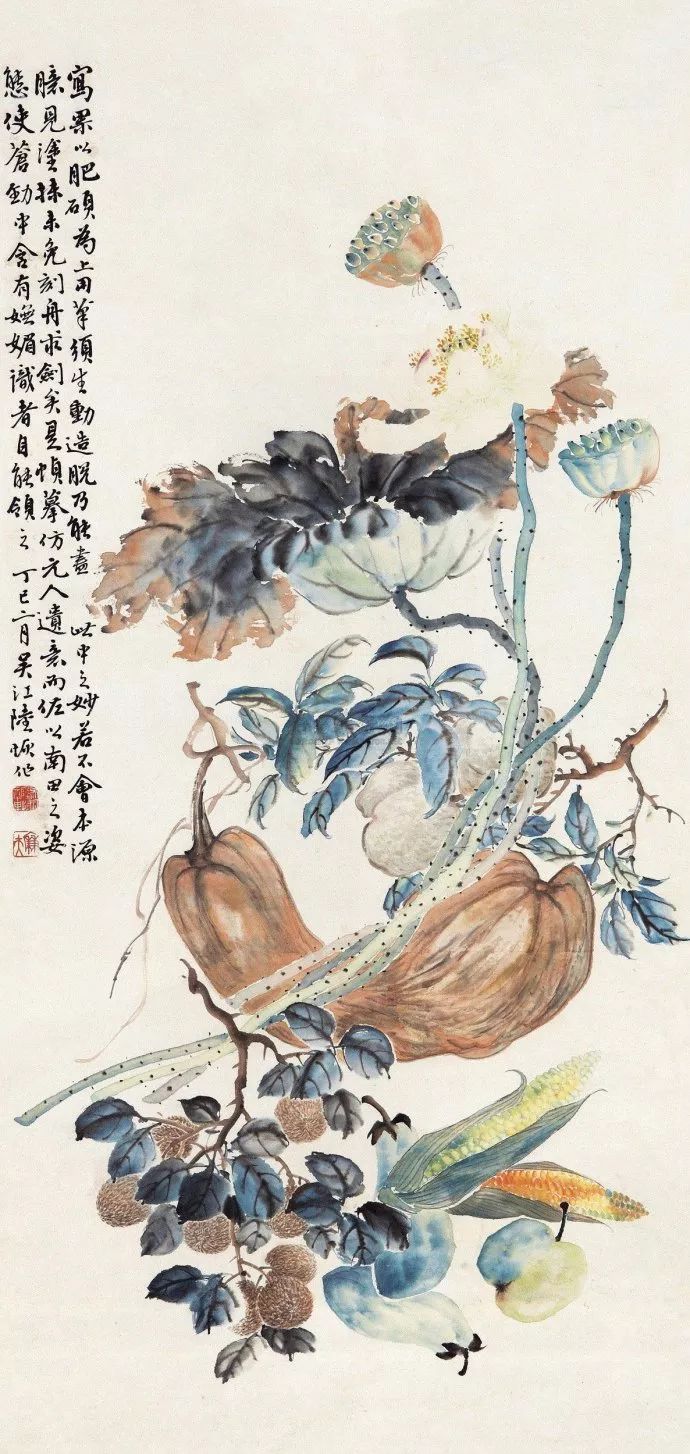 寫果以肥碩為上用筆須生動造脫乃能盡此中之妙若不會本源
臆見塗抹未免刻舟求劍矣是幀摹仿元人遺意而佐以南田之姿
態使蒼勁中含有嫵媚識者自能領之 丁巳二月吳江陸恢作